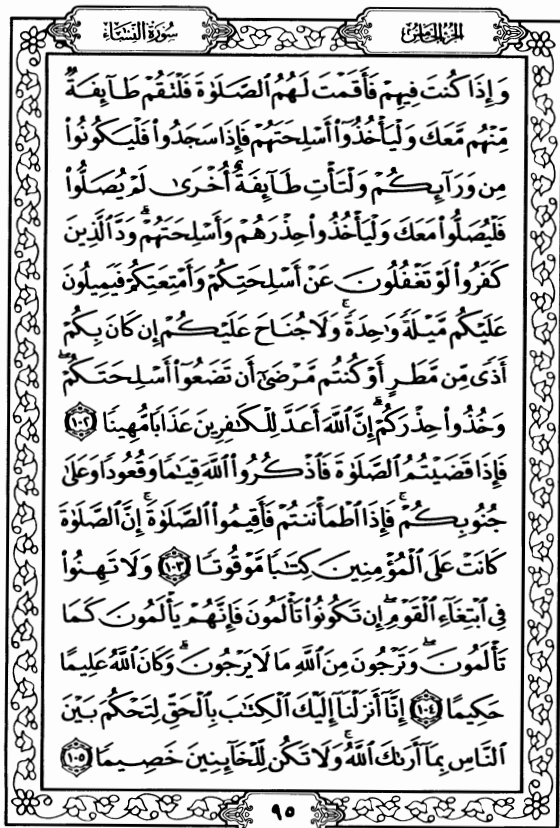 الجزء الخامس
سورة النساء
وَإِذَا كُنتَ فِيهِمْ فَأَقَمْتَ لَهُمُ ٱلصَّلَوٰةَ فَلْتَقُمْ طَآئِفَةٌ
مِّنْهُم مَّعَكَ وَلْيَأْخُذُوٓا۟ أَسْلِحَتَهُمْ فَإِذَا سَجَدُوا۟ فَلْيَكُونُوا۟
مِن وَرَآئِكُمْ وَلْتَأْتِ طَآئِفَةٌ أُخْرَىٰ لَمْ يُصَلُّوا۟
فَلْيُصَلُّوا۟ مَعَكَ وَلْيَأْخُذُوا۟ حِذْرَهُمْ وَأَسْلِحَتَهُمْ ۗ وَدَّ ٱلَّذِينَ
كَفَرُوا۟ لَوْ تَغْفُلُونَ عَنْ أَسْلِحَتِكُمْ وَأَمْتِعَتِكُمْ فَيَمِيلُونَ
عَلَيْكُم مَّيْلَةً وَٰحِدَةً ۚ وَلَا جُنَاحَ عَلَيْكُمْ إِن كَانَ بِكُمْ
أَذًى مِّن مَّطَرٍ أَوْ كُنتُم مَّرْضَىٰٓ أَن تَضَعُوٓا۟ أَسْلِحَتَكُمْ ۖ
وَخُذُوا۟ حِذْرَكُمْ ۗ إِنَّ ٱللَّهَ أَعَدَّ لِلْكَٰفِرِينَ عَذَابًا مُّهِينًا ١٠٢
فَإِذَا قَضَيْتُمُ ٱلصَّلَوٰةَ فَٱذْكُرُوا۟ ٱللَّهَ قِيَٰمًا وَقُعُودًا وَعَلَىٰ
جُنُوبِكُمْ ۚ فَإِذَا ٱطْمَأْنَنتُمْ فَأَقِيمُوا۟ ٱلصَّلَوٰةَ ۚ إِنَّ ٱلصَّلَوٰةَ
كَانَتْ عَلَى ٱلْمُؤْمِنِينَ كِتَٰبًا مَّوْقُوتًا ١٠٣ وَلَا تَهِنُوا۟
فِى ٱبْتِغَآءِ ٱلْقَوْمِ ۖ إِن تَكُونُوا۟ تَأْلَمُونَ فَإِنَّهُمْ يَأْلَمُونَ كَمَا
تَأْلَمُونَ ۖ وَتَرْجُونَ مِنَ ٱللَّهِ مَا لَا يَرْجُونَ ۗ وَكَانَ ٱللَّهُ عَلِيمًا
حَكِيمًا ١٠٤ إِنَّآ أَنزَلْنَآ إِلَيْكَ ٱلْكِتَٰبَ بِٱلْحَقِّ لِتَحْكُمَ بَيْنَ
ٱلنَّاسِ بِمَآ أَرَىٰكَ ٱللَّهُ ۚ وَلَا تَكُن لِّلْخَآئِنِينَ خَصِيمًا ١٠٥
٩٥